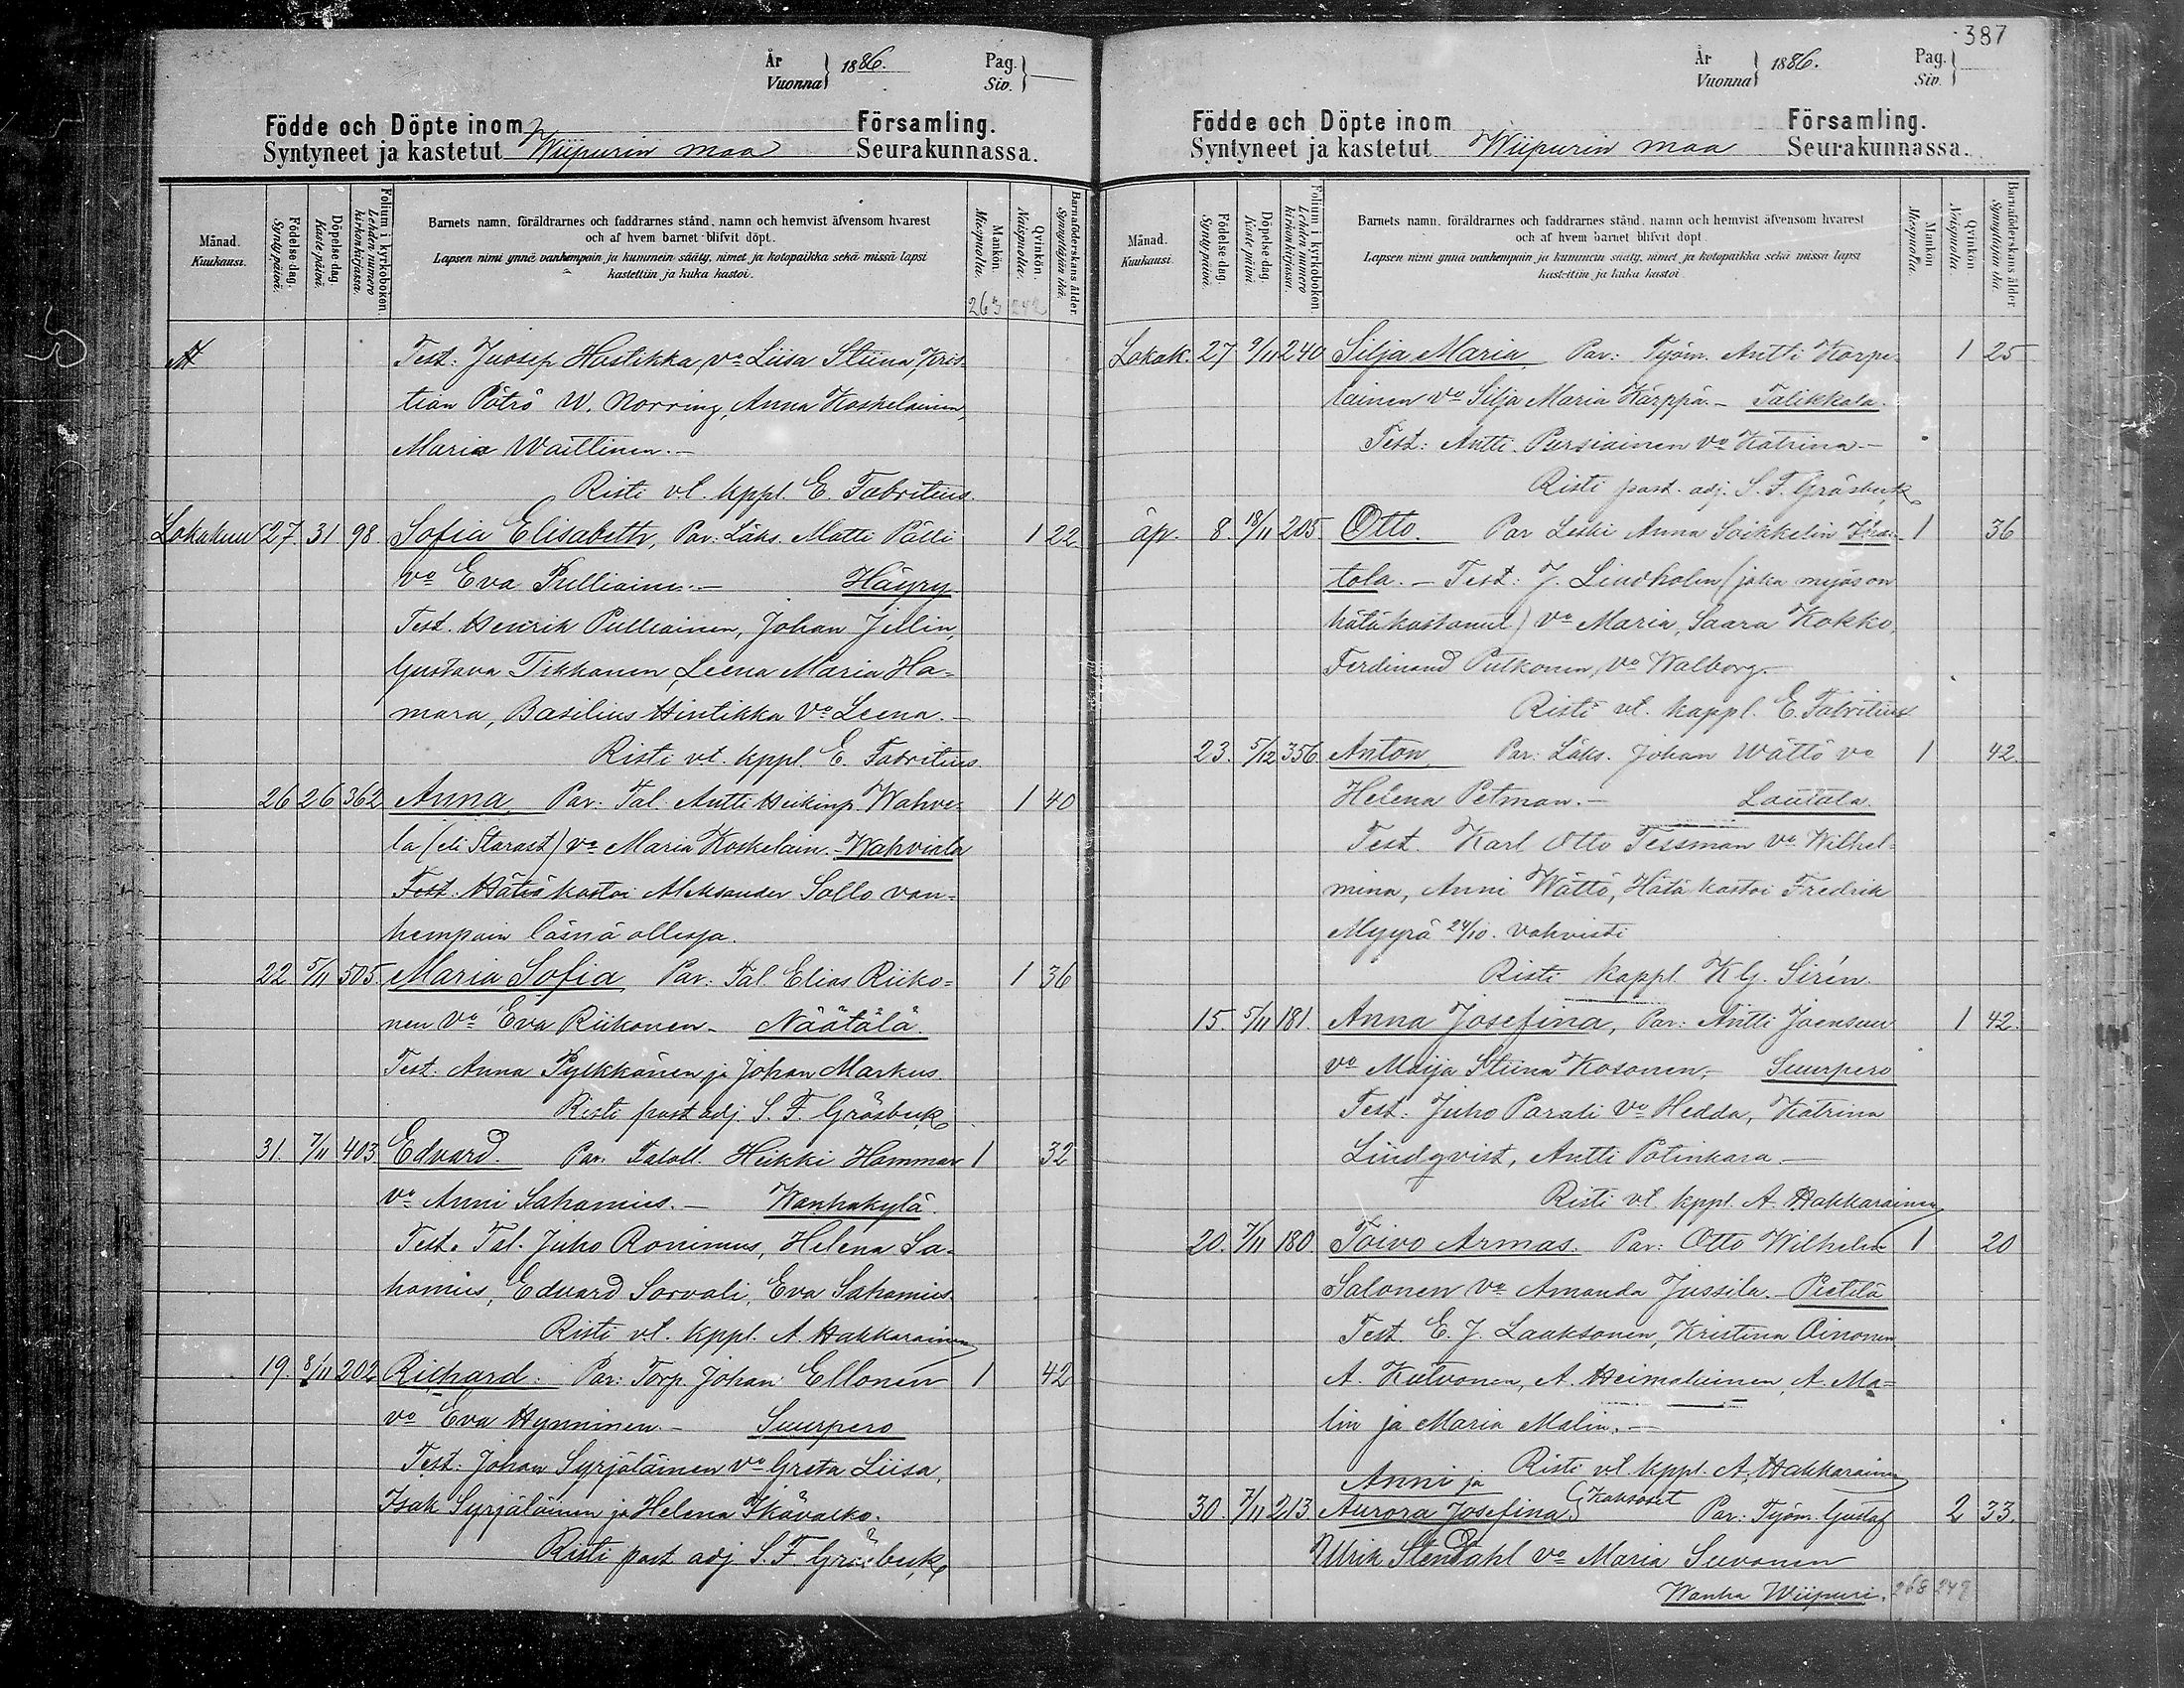 År
Vuonna 1886.
Pag.
Siv.
Födde och Döpte inom Församling.
Syntyneet ja kastetut Wiipurin maa Seurakunnassa.
Månad.
Kuukausi.
Födelse-dag.
Syntypäivä.
Döpelse-dag.
Kastepäivä.
Folium i kyrkoboken.
Lehden numero kirkonkirjassa.
Barnets namn, föräldrarnes och faddrarnes stånd, namn och hemvist äfvensom hvarest
och af hvem barnet blifvit döpt.
Lapsen nimi ynnä vanhempain ja kummein sääty, nimet ja kotopaikka sekä missä lapsi
kastettiin ja kuka kastoi.
Mankön.
Miespuolia.
Qvinkön.
Naispuolia.
Barnaföderskans ålder.
Synnyttäjän ikä.
263 242
Test: Juosep Hostikka, vo Liisa Stiina, Kris-
tian Pötrö W. Norring, Anna Koskelainen,
Maria Waittinen.-
Risti vt. kppl. E. Fabritius.
Lokakuu 27. 31 98 Sofia Elisabeth, Par: Läks. Matti Pälli 1 22
vo Eva Pulliainen.- Häyry
Test. Henrik Pulliainen, Johan Jillin,
Gustava Tikkanen, Leena Maria Ha-
mara, Basilius Hintikka vo Leena.-
Risti vt. kppl. E. Fabritius.
26 26 362 Anna Par: Tal. Antti Heikinp. Wahve- 1 40
la (eli Starast) vo Maria Koskelain.- Wahviala
Test: Hätäkastoi Aleksander Sallo van-
hempain läsnä ollessa.
22 5/11 505. Maria Sofia Par: Tal Elias Riiko- 1 36
nen vo Eva Riikonen- Näätälä
Test: Anna Pylkkänen ja Johan Markus.
Risti past adj. S. F. Gråsbeck
31. 7/11 403 Edvard. Par. Taloll. Heikki Hammar 1 32
vo Anni Sahamies.- Wanhakylä.
Test. Tal. Juho Ronimus, Helena Sa-
hamies, Edvard Sorvali, Eva Sahamies.
Risti vt. kppl. A. Hakkarainen
19. 8/11 202 Richard. Par: Torp. Johan Ellonen 1 42
vo Eva Hynninen.- Suurpero
Test: Johan Syrjäläinen vo Greta Liisa,
Isak Syrjäläinen ja Helena Ikävalko.
Risti past adj. S. F Gråsbeck
387
År
Vuonna 1886.
Pag.
Siv.
Födde och Döpte inom Församling.
Syntyneet ja kastetut Wiipurin maa Seurakunnassa.
Månad.
Kuukausi.
Födelse-dag.
Syntypäivä.
Döpelse-dag.
Kastepäivä.
Folium i kyrkoboken.
Lehden numero kirkonkirjassa.
Barnets namn, föräldrarnes och faddrarnes stånd, namn och hemvist äfvensom hvarest
och af hvem barnet blifvit döpt.
Lapsen nimi ynnä vanhempain ja kummein sääty, nimet ja kotopaikka sekä missä lapsi
kastettiin ja kuka kastoi.
Mankön
Miespuolia.
Qvinkön
Naispuolia.
Barnaföderskans ålder.
Synnyttäjän ikä.
Lokak. 27 9/11 240 Silja Maria, Par: Työm. Antti Karpe- 1 25
lainen vo Silja Maria Kärppä.- Talikkala.
Test: Antti Pursiainen vo Katrina-
Risti past. adj. S. F. Gråsbeck
äp. 8. 18/11 205. Otto. Par Leski Anna Saikkelin 1 36
tola.- Test: J. Lindholm (joka myös on
hätäkastanut) vo Maria, Saara Kokko,
Ferdinand Pulkonen, vo Walborg.-
Risti vt. kappl. E. Fabritius
23. 5/12 356. Anton Par: Läks. Johan Wättö vo 1 42.
Helena Petman.- Lautala.
Test. Karl Otto Tessman vo Wilhel-
mina, Anni Wättö, Hätäkastoi Fredrik
Myyrä 24/10. vahvisti
Risti kappl. K G. Sirén.
15. 5/11 181. Anna Josefina, Par: Antti Joensuu 1 42.
vo Maija Stiina Kosonen,- Suurpero
Test: Juho Parali vo Hedda, Katrina
Lindqvist, Antti Potinkara.-
Risti vt. kppl. A. Hakkarainen
20. 7/11 180. Toivo Armas. Par: Otto Wilhelm 1 20
Salonen vo Amanda Jussila.- Pietilä
Test. E. J. Laaksonen, Kristina Ainonen
A. Kutvonen, A. Heimolainen, A. Ma-
lin ja Maria Malin.-
Risti vt. kppl. A. Hakkarainen
Anni ja
30. 7/11 213 Aurora Josefina } Kaksoset Par: Työm. Gustaf 2 33.
Ulrik Stendahl vo Maria Suvonen
Wanha Wiipuri. 268 242